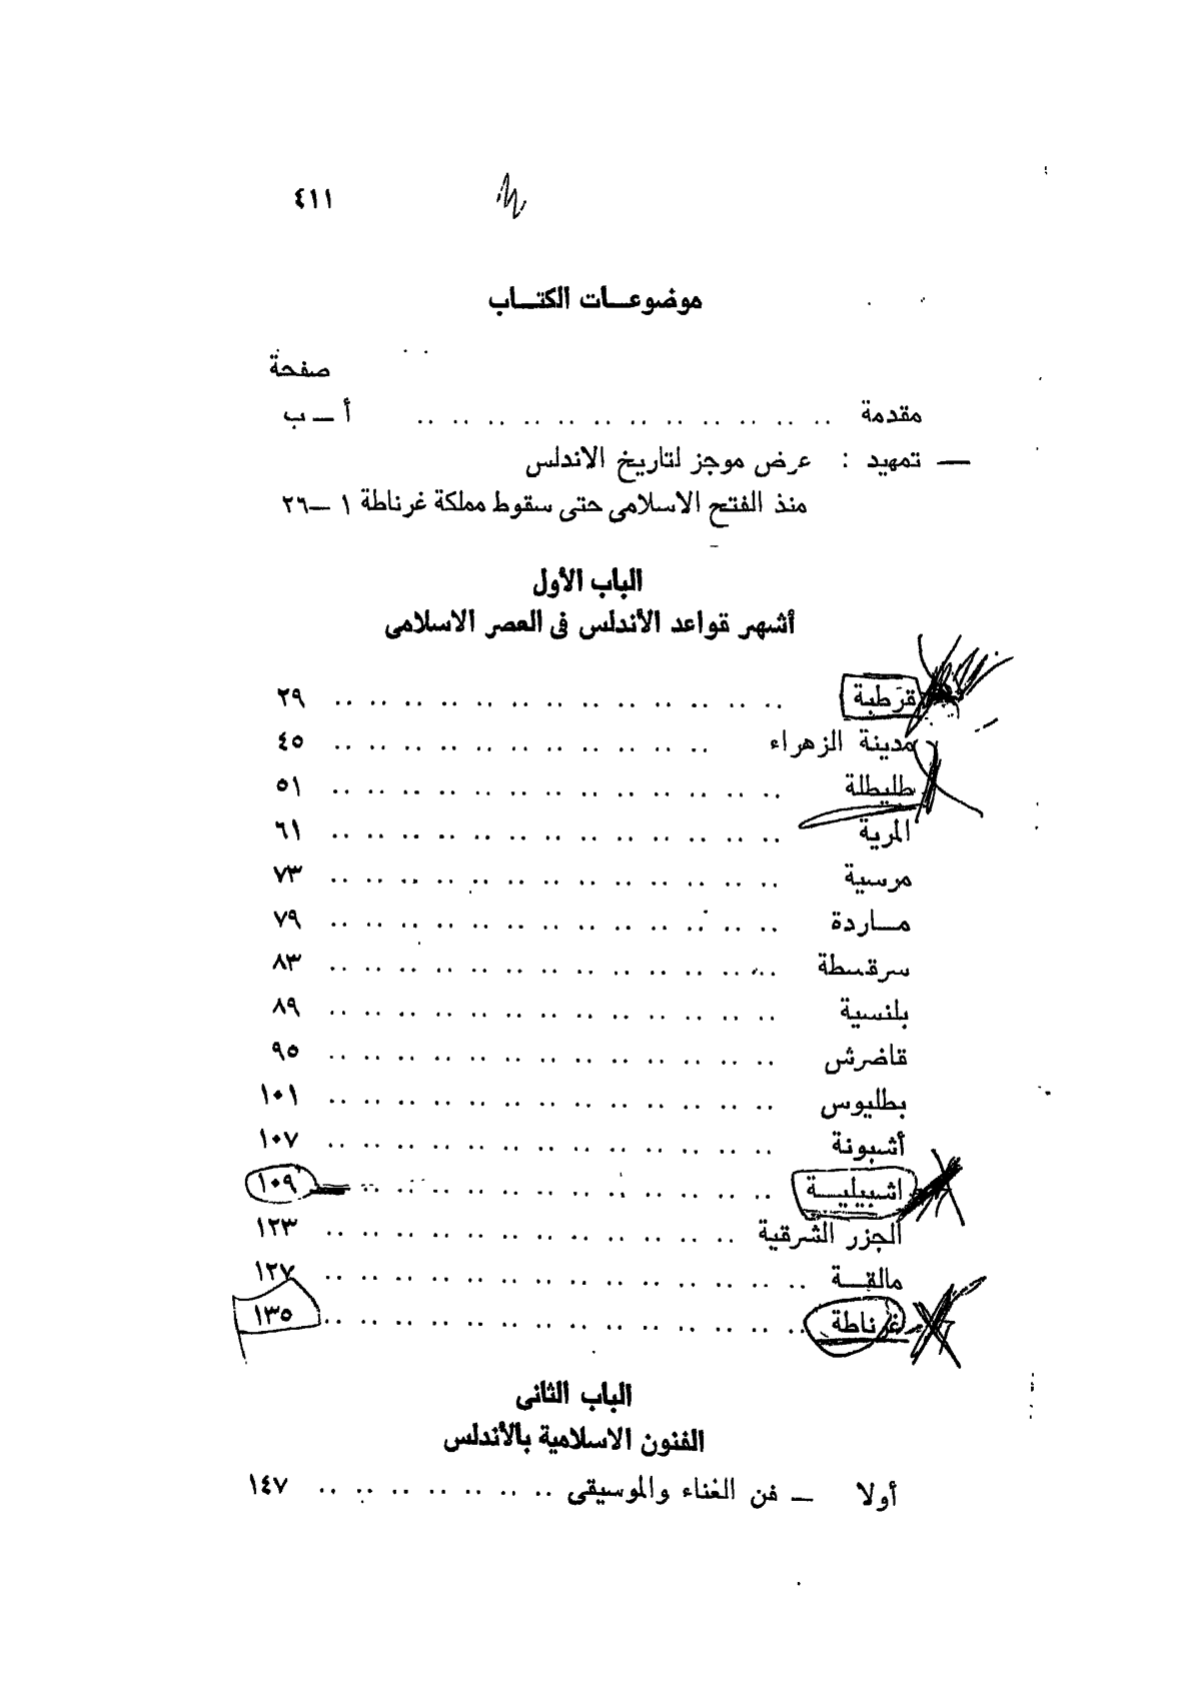 ٤١١
موضوعـــات الكتـــاب
صفحة
مقدمة .. .. .. .. .. .. .. .. .. .. .. .. أ — ب
— تمهيد : عرض موجز لتاريخ الاندلس
منذ الفتح الاسلامى حتى سقوط مملكة غرناطة ١ —٢٦
الباب الأول
أشهر قواعد الأندلس فى العصر الاسلامى
قرطبة .. .. .. .. .. .. .. .. .. .. .. .. .. ٢٩
مدينة الزهراء .. .. .. .. .. .. .. .. .. .. .. ٤٥
طليطلة .. .. .. .. .. .. .. .. .. .. .. .. .. ٥١
المرية .. .. .. .. .. .. .. .. .. .. .. .. .. ٦١
مرسية .. .. .. .. .. .. .. .. .. .. .. .. .. ٧٣
مـــاردة .. .. .. .. .. .. .. .. .. .. .. .. .. ٧٩
سرقسطة .. .. .. .. .. .. .. .. .. .. .. .. .. ٨٣
بلنسية .. .. .. .. .. .. .. .. .. .. .. .. .. ٨٩
قاضرش .. .. .. .. .. .. .. .. .. .. .. .. .. ٩٥
بطليوس .. .. .. .. .. .. .. .. .. .. .. .. .. ١٠١
أشبونة .. .. .. .. .. .. .. .. .. .. .. .. .. ١٠٧
اشبيليـــة .. .. .. .. .. .. .. .. .. .. .. .. ١٠٩
الجزر الشرقية .. .. .. .. .. .. .. .. .. .. .. .. ١٢٣
مالقـــة .. .. .. .. .. .. .. .. .. .. .. .. .. .. ١٢٧
غرناطة .. .. .. .. .. .. .. .. .. .. .. .. .. .. ١٣٥
الباب الثانى
الفنون الاسلامية بالأندلس
أولا — فن الغناء والموسيقى .. .. .. .. .. .. .. ١٤٧